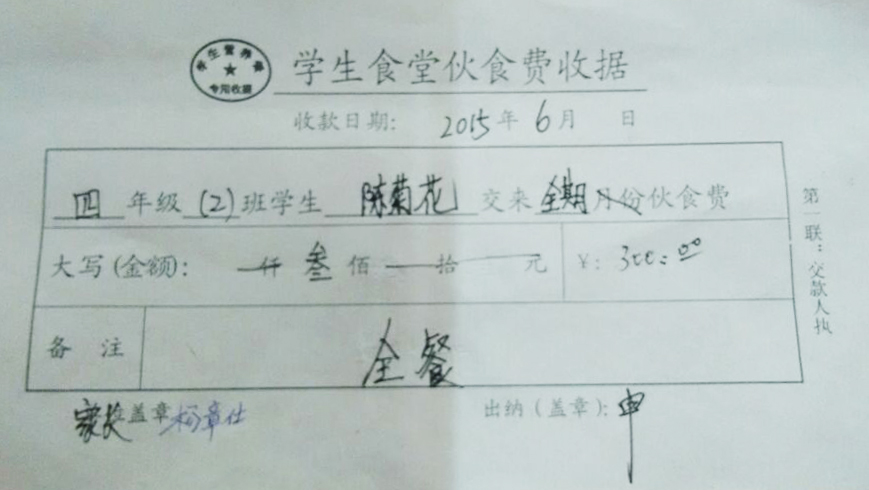 学生营养餐
专用收据
学生食堂伙食费收据
收款日期: 2015年6月 日
四年级(2)班学生 陈菊花 交来全期月份伙食费
大写(金额): 仟叁佰 拾 元 ¥: 300:00
备 注 全餐
家长盖章 杨章仕
出纳(盖章): 申
第一联：交款人执